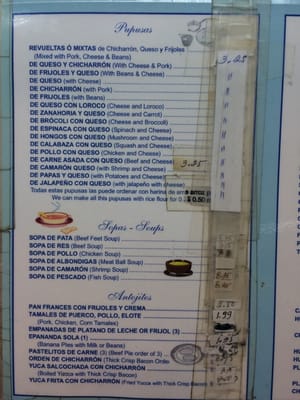 Pupusas
REVUELTAS Ó MIXTAS de Chicharrón, Queso y Frijoles
(Mixed with Pork, Cheese & Beans)
3.25
DE QUESO Y CHICHARRÓN (With Cheese & Pork)
DE FRIJOLES Y QUESO (With Beans & Cheese)
DE QUESO (with Cheese)
DE CHICHARRÓN (with Pork)
DE FRIJOLES (with Beans)
DE QUESO CON LOROCO (Cheese and Loroco)
DE ZANAHORIA Y QUESO (Cheese and Carrot)
DE BRÓCOLI CON QUESO (Cheese and Broccoli)
DE ESPINACA CON QUESO (Spinach and Cheese)
DE HONGOS CON QUESO (Mushroom and Cheese)
DE CALABAZA CON QUESO (Squash and Cheese)
DE POLLO CON QUESO (Chicken and Cheese)
DE CARNE ASADA CON QUESO (Beef and Cheese) 3.25
DE CAMARÓN QUESO (with Shrimp and Cheese)
DE PAPAS Y QUESO (with Potatoes and Cheese)
DE JALAPEÑO CON QUESO (with jalapeño with cheese)
Todas estas pupusas las puede ordenar con harina de arroz
We can make all this pupusas with rice flour for 0.50
Sopas - Soups
SOPA DE PATA (Beef Feet Soup)
SOPA DE RES (Beef Soup)
SOPA DE POLLO (Chicken Soup)
SOPA DE ALBONDIGAS (Meat Ball Soup)
SOPA DE CAMARÓN (Shrimp Soup)
SOPA DE PESCADO (Fish Soup)
Antojitos
PAN FRANCES CON FRIJOLES Y CREMA
TAMALES DE PUERCO, POLLO, ELOTE 1.99
(Pork, Chicken, Corn Tamales)
EMPANADAS DE PLATANO DE LECHE OR FRIJOL (3)
EPANANDA SOLA (1)
(Banana Pies with Milk or Beans)
PASTELITOS DE CARNE (3) (Beef Pie order of 3)
ORDEN DE CHICHARRÓN (Thick Crisp Bacon Order)
YUCA SALCOCHADA CON CHICHARRÓN
(Boiled Yucca with Thick Crisp Bacon)
YUCA FRITA CON CHICHARRÓN (Fried Yucca with Thick Crisp Bacon)